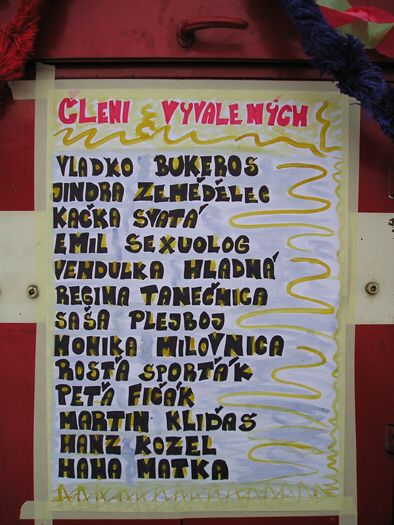 ČLENI VYVALENÝCH
VLADKO BUKEROŠ
JINDRA ZEMĚDĚLEC
KAČKA SVATÁ
EMIL SEXUOLOG
VENDULKA HLADNÁ
REGINA TANEČNICA
SAŠA PLEJBOJ
MONIKA MILOVNICA
ROSTA SPORTÁK
PETĀ FIČÁK
MARTIN KLIĎAS
HANZ KOZEL
HANA MATKA